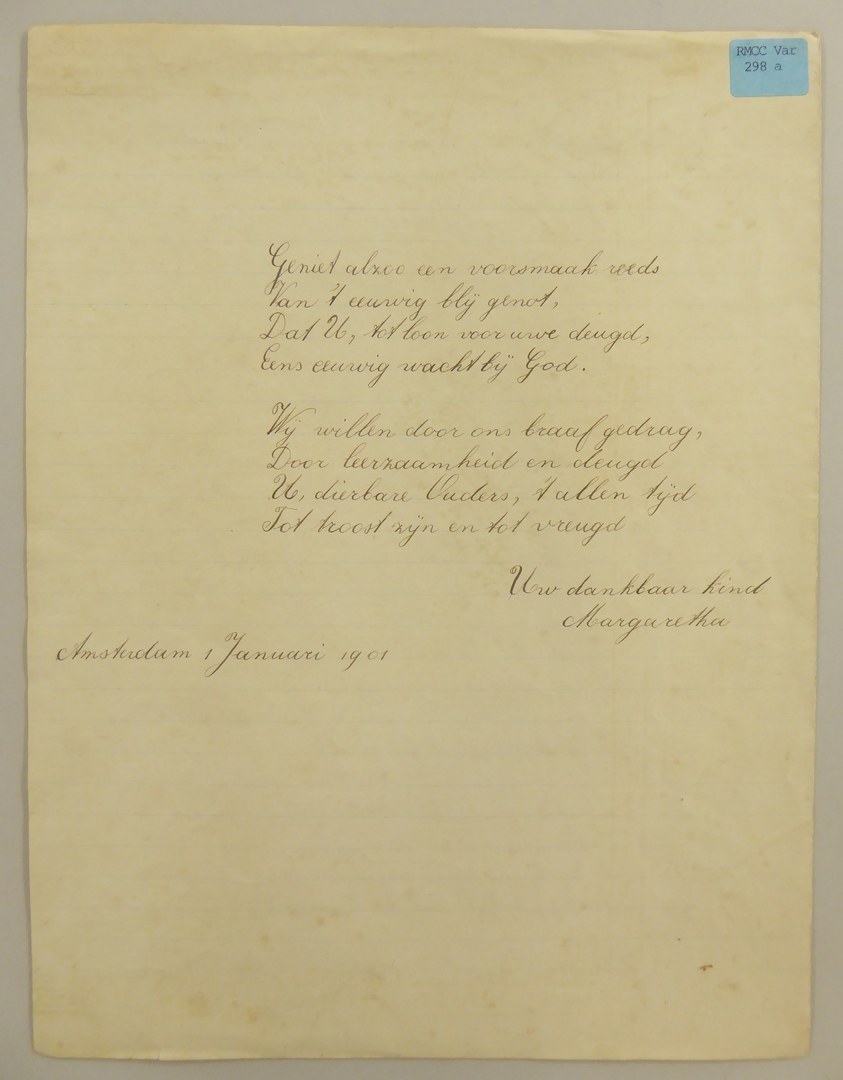 RMCC Var
298 a
Geniet alzoo een voorsmaak reeds
Van 't eeuwig blij genot,
Dat U, tot loon voor uwe deugd,
Eens eeuwig wacht bij God.
Wij willen door ons braaf gedrag,
Door leerzaamheid en deugd
U, dierbare Ouders, 't allen tijd
Tot troost zijn en tot vreugd
Uw dankbaar kind
Margaretha
Amsterdam 1 Januari 1901